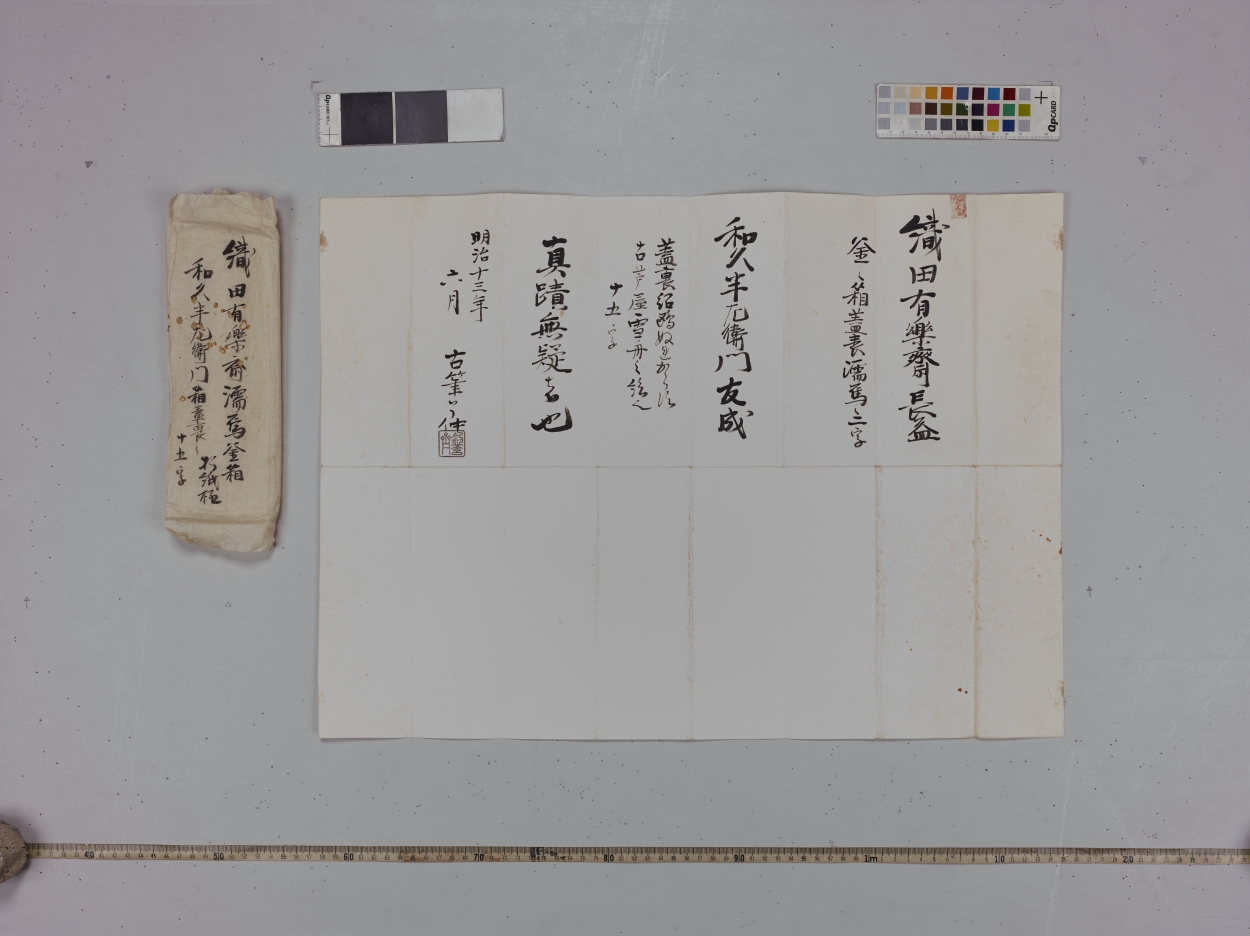 織田有樂齋長益
釜之箱蓋裏濡烏之二字
和久半左衛門友成
蓋裏紹鴎
古芦屋雪舟
十五字
真蹟無疑者也
明治十三年
六月
古筆了仲
織田有樂齋濡烏釜箱
和久半左衛門箱蓋裏之
十五字
折紙極
QPCARD
QPCARD
40
50
60
70
80
90
1m
10
20